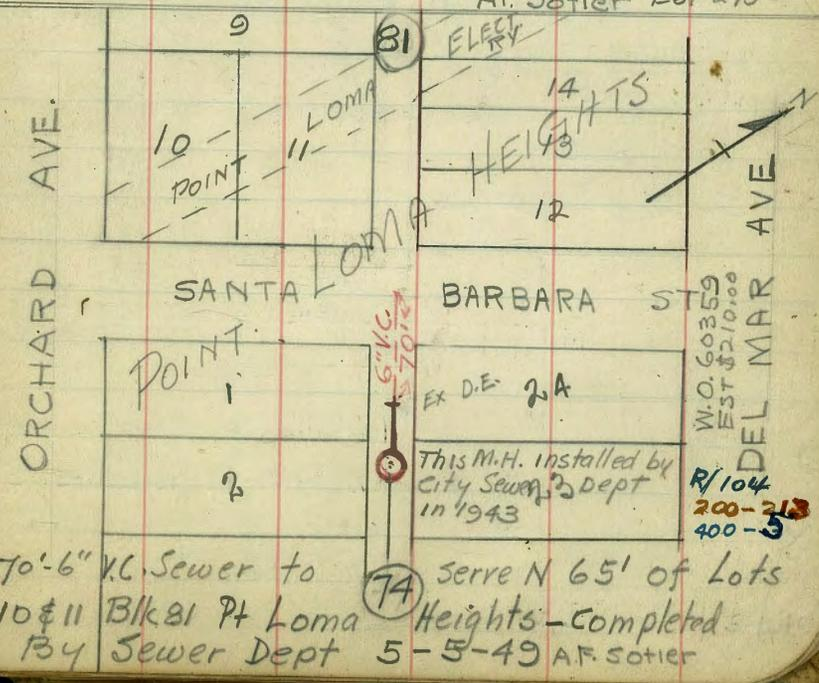 A.F. Sotier
9
81
ELECT
RY
14
10
POINT
11
LOMA
HEIGHTS
13
12
N
ORCHARD AVE.
DEL MAR AVE
POINT
LOMA
SANTA BARBARA ST
6" V.C.
70'
W.O. 60359
EST $210.00
1
Ex D.E. 2A
2
This M.H. installed by
City Sewer Dept
in 1943
R/104
200-213
400-5
74
70'-6" V.C. Sewer to serve N 65' of Lots
10 & 11 Blk 81 Pt Loma Heights - Completed
By Sewer Dept 5-5-49 A.F. Sotier